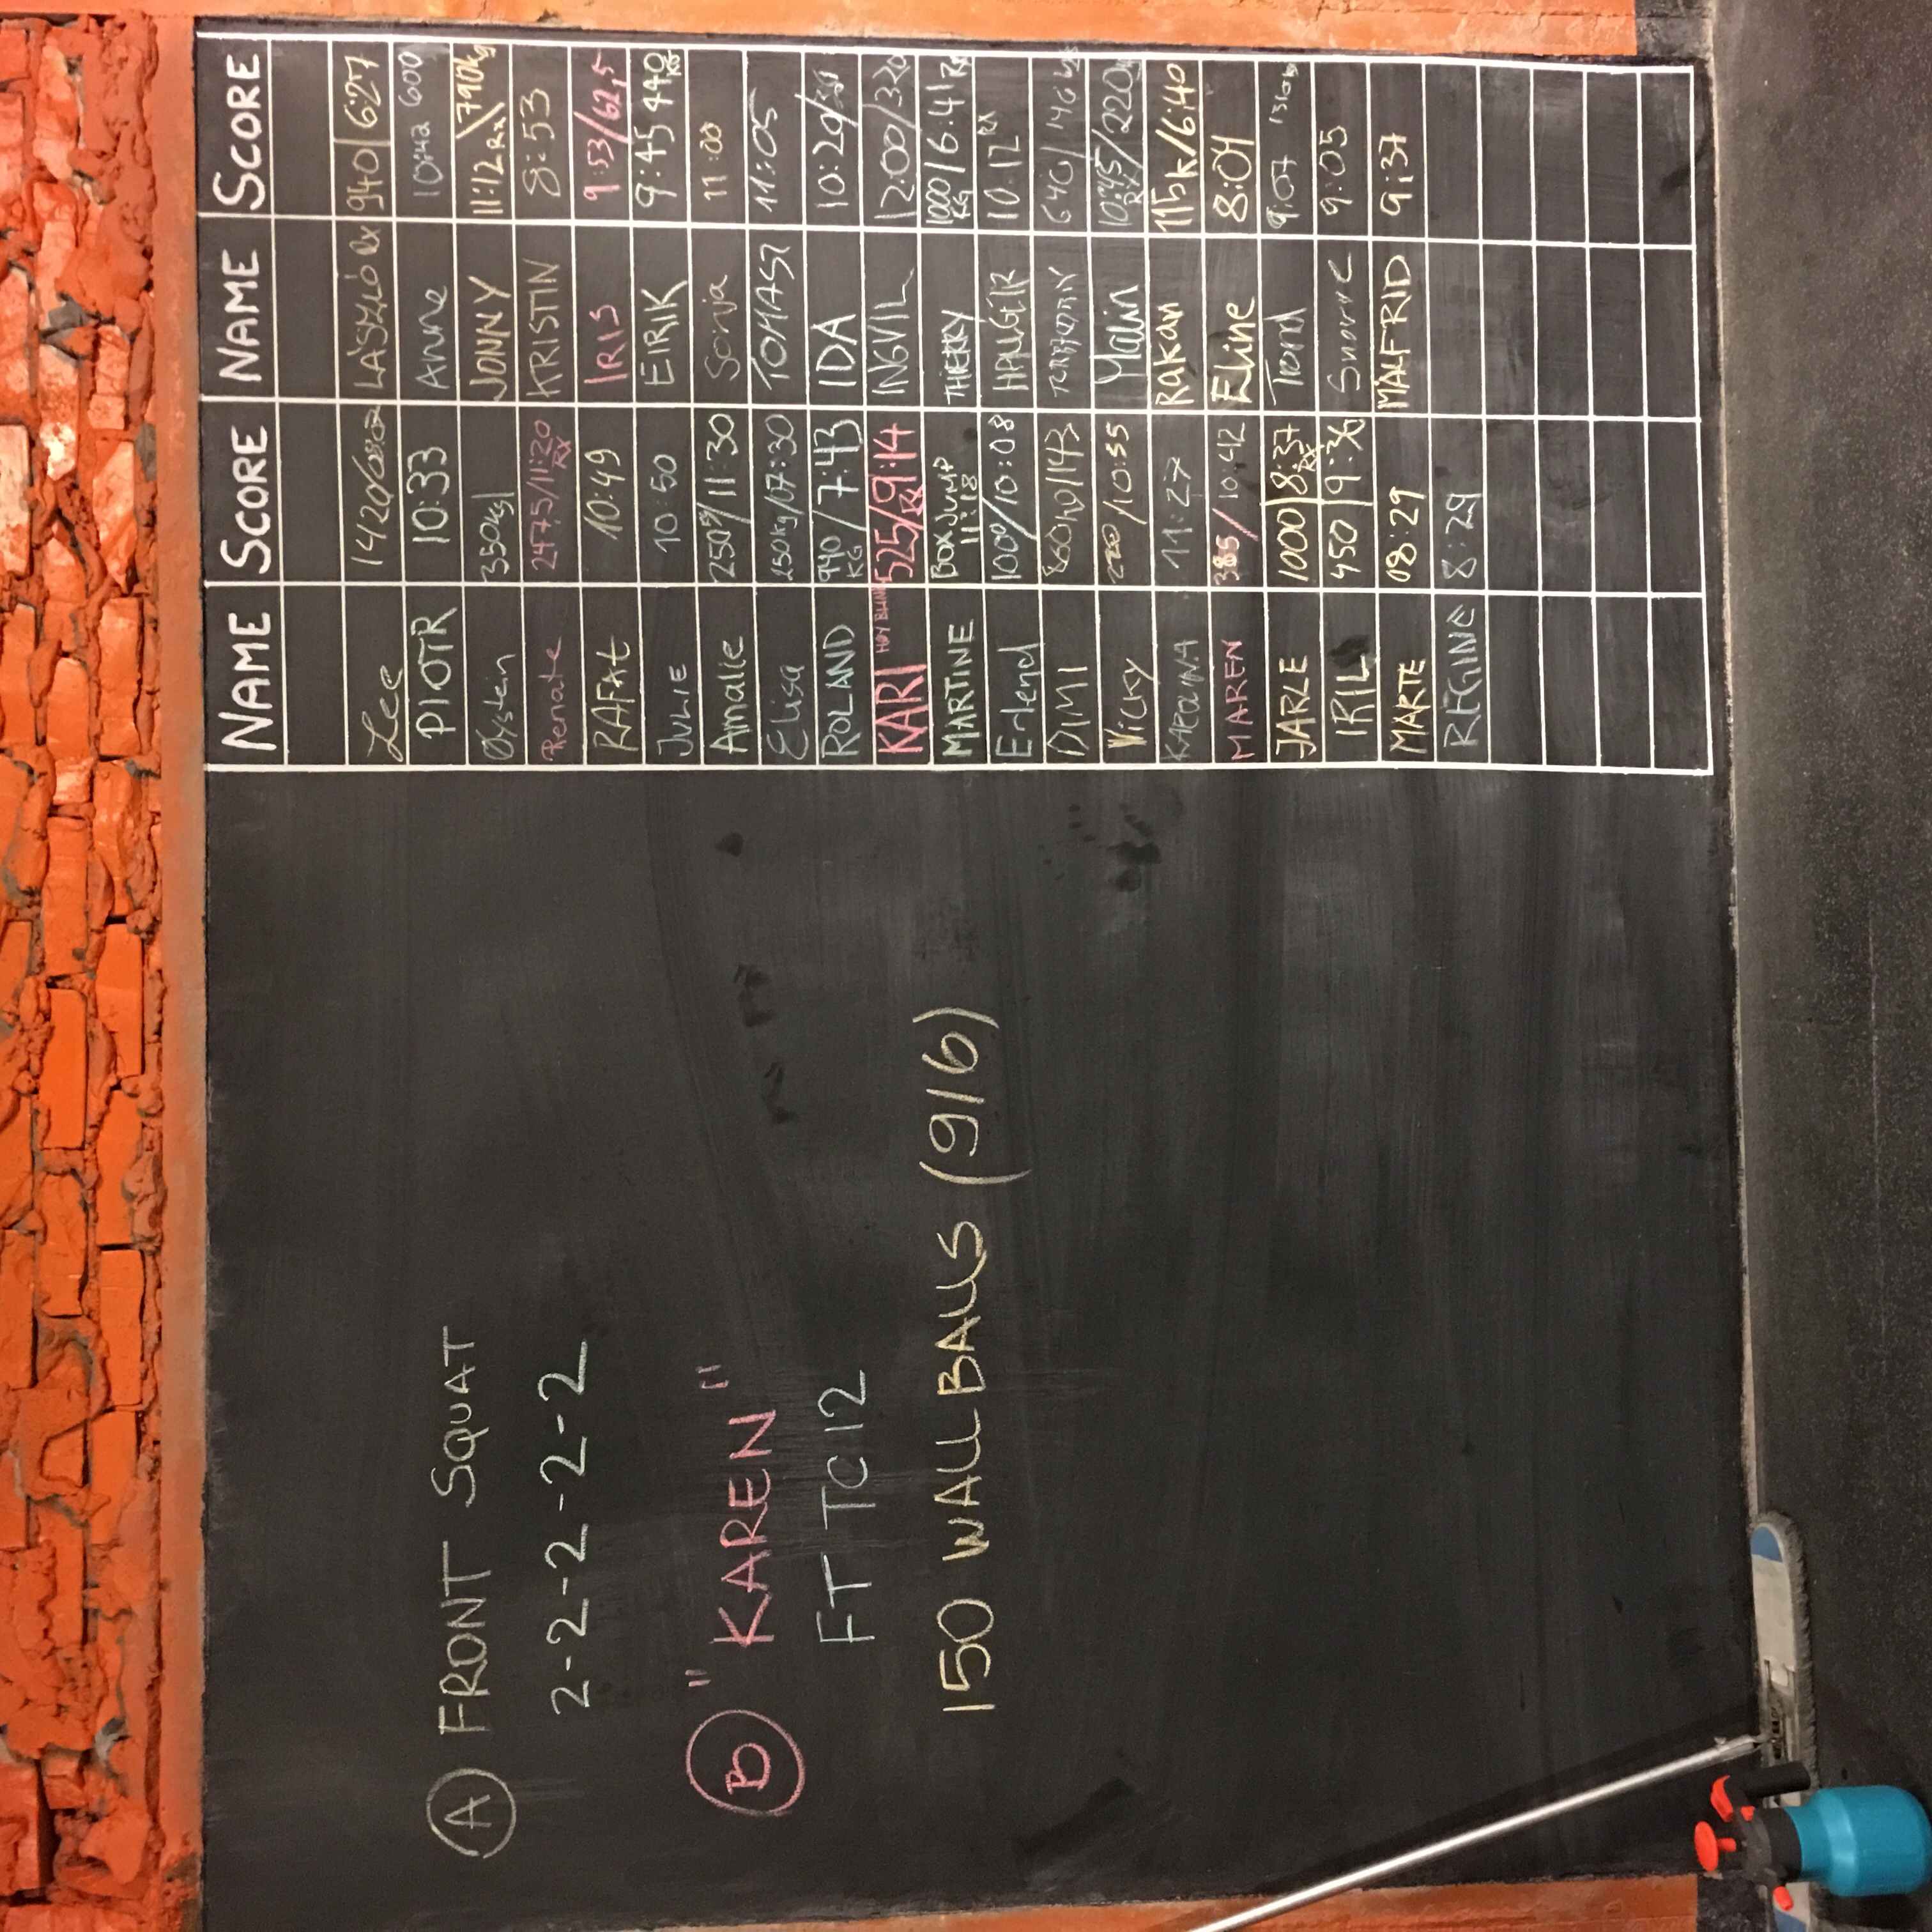 A FRONT SQUAT
2-2-2-2-2-2
B "KAREN"
FT TC12
150 WALL BALLS (9/6)
NAME SCORE NAME SCORE
Lee 1420 LÁSZLÓ Rx 940 | 6:27
PIOTR 10:33 Anne 10:42 600
Øystein 350kg JONNY 11:12 Rx \ 790kg
Renate 247,5/11:20 RX KRISTIN 8:53
RAFAŁ 10:49 IRIS 9:53/62,5
JULIE 10:50 EIRIK 9:45 440 KG
Amalie 250kg/11:30 Sonja 11:00
Elisa 250kg/07:30 TOMASZ 11:05
ROLAND 940 KG / 7:43 IDA 10:20/
KARI HØY BLINK 525/9:14 RX INGVIL 12:00/320
MARTINE BOX JUMP 11:18 THIERRY 1000 KG / 6:41 Rx
Erlend 1000/10:08 HALLGEIR 10:12 RX
DIMI TORBJØRN 640/
Vicky 220/10:55 Malin 10:45/220kg RX
KAROLINA 11:27 Rakan 115k/6:40
MAREN 385/10:42 Eline 8:04
JARLE 1000 | 8:37 RX Tord 9:07
IRIL 450 | 9:36 Snorre 9:05
MARTE 08:29 MALFRID 9:37
REGINE 8:29